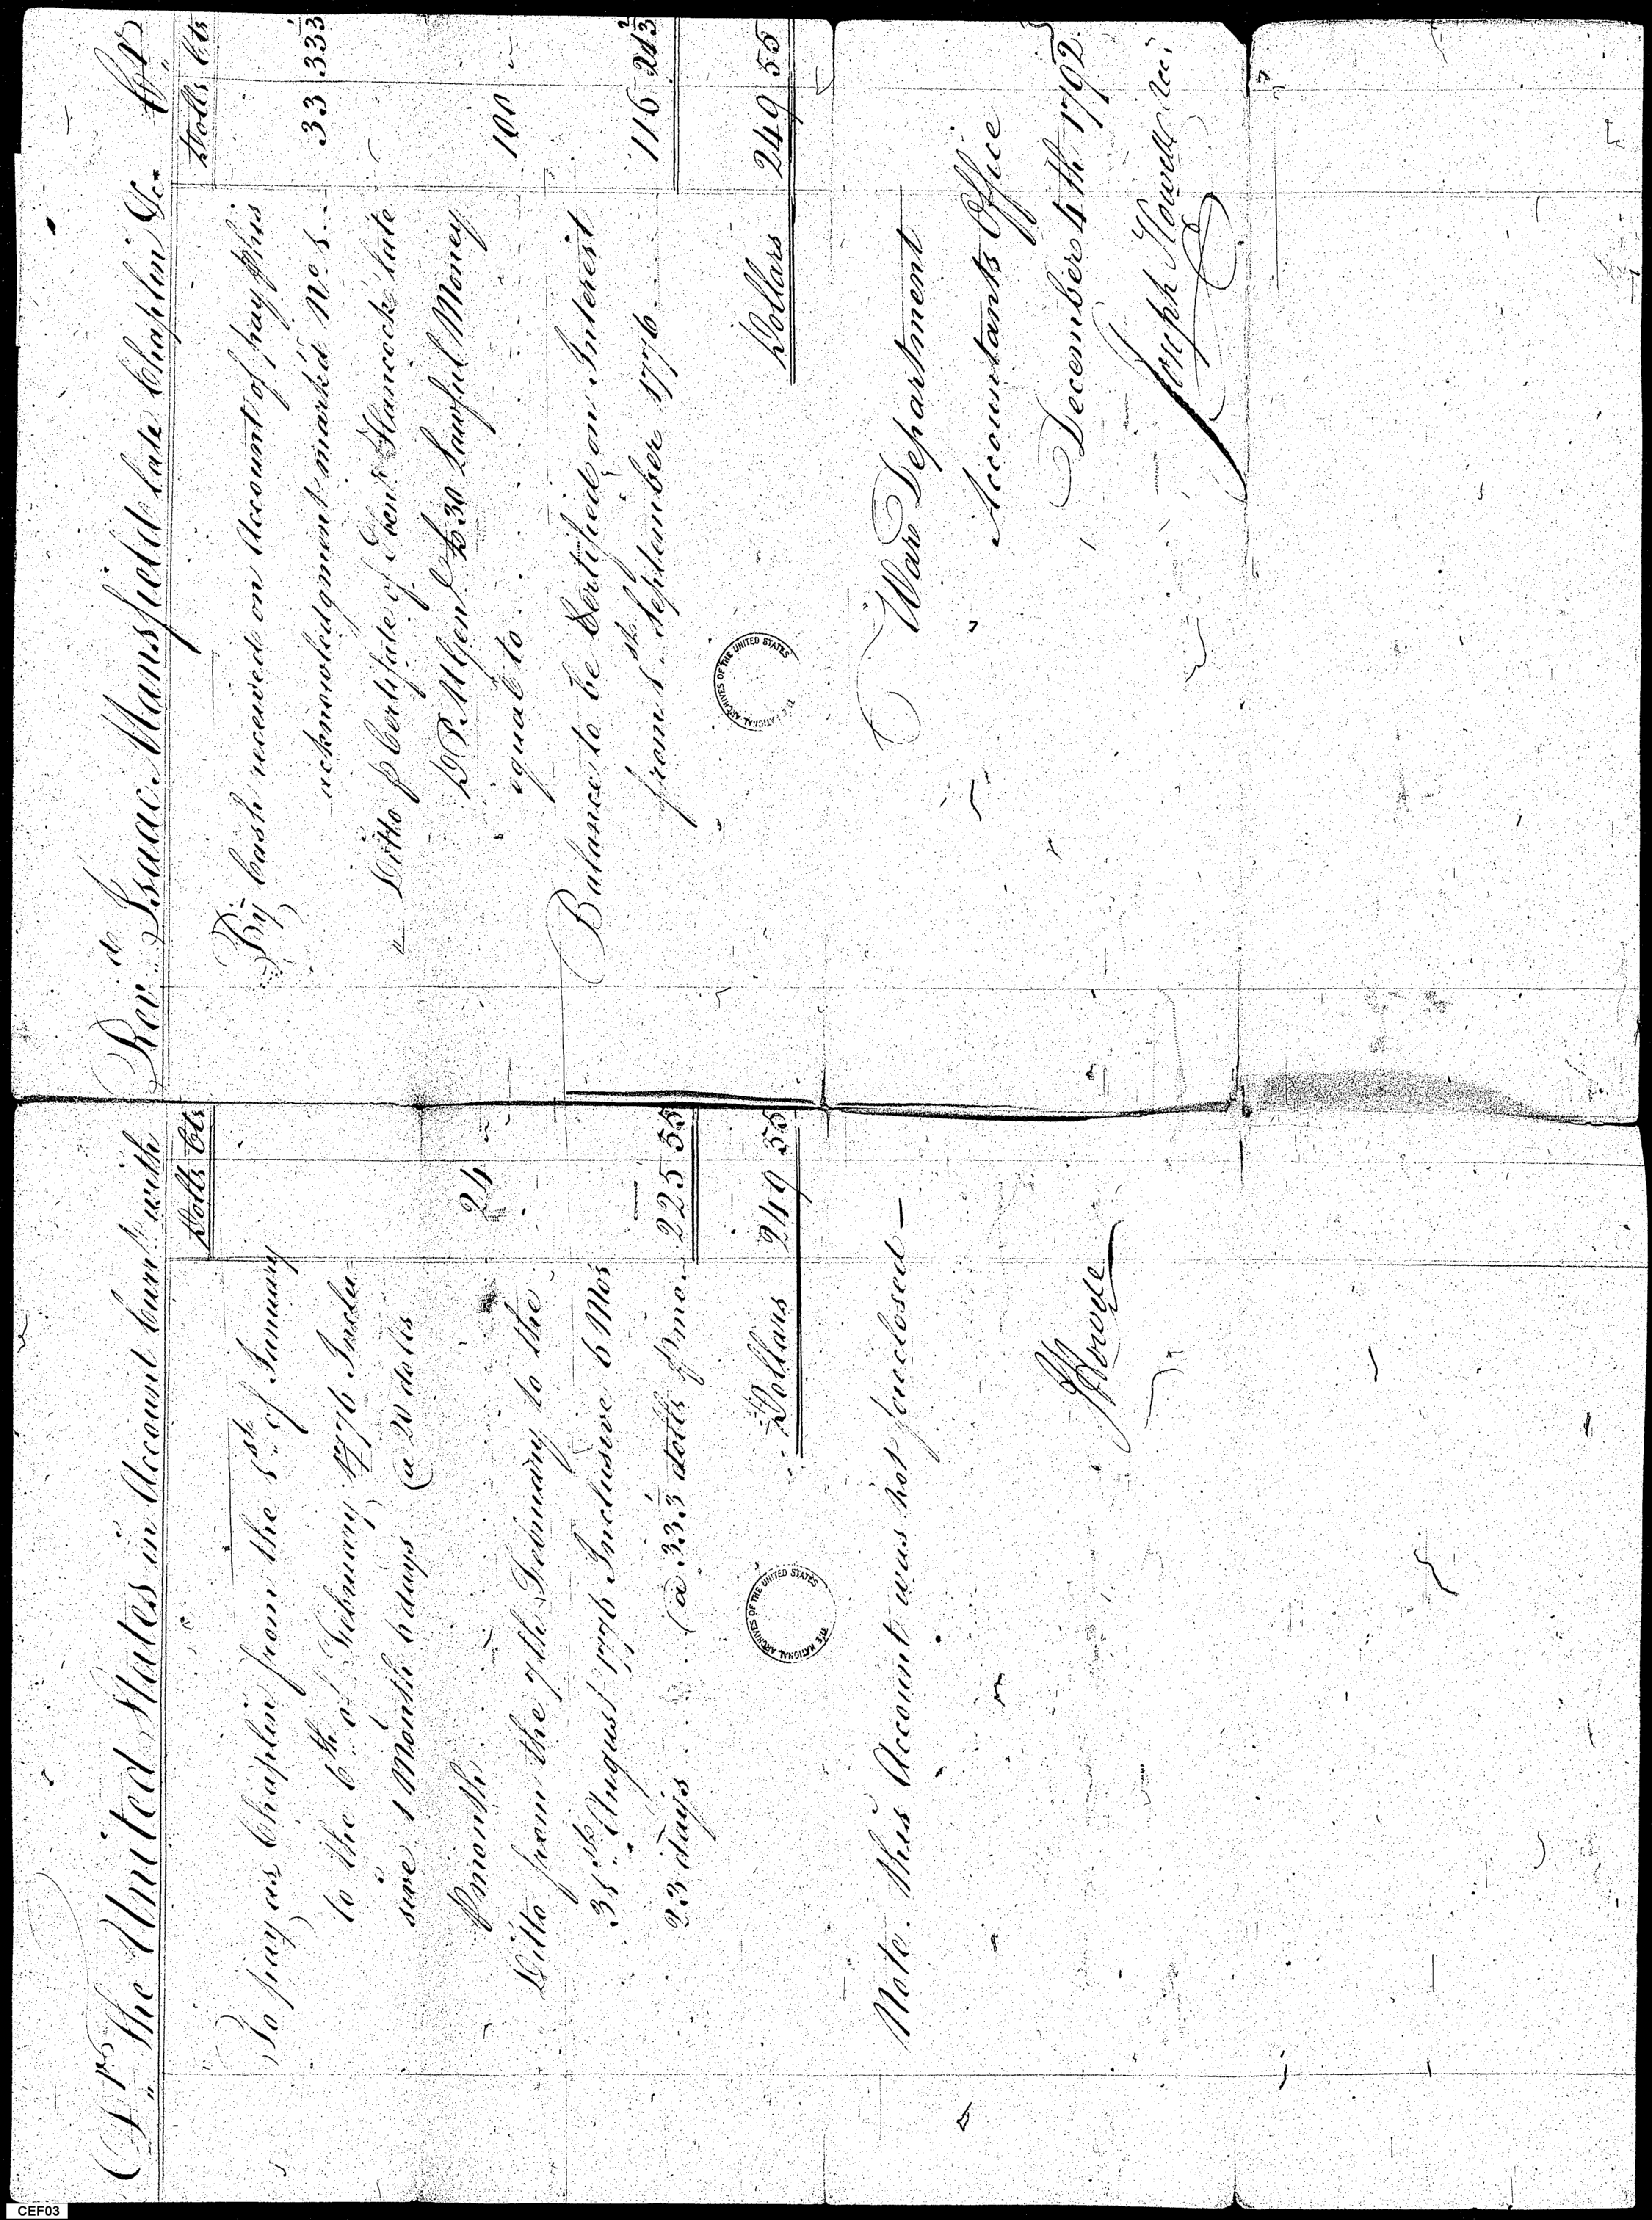 Dr. The United States in Account Currt. with
Dolls Cts
To pay as Chaplin from the 1st of January
to the 6th of February 1776 Inclu
sive 1 Month 6 days @ 20 dolls
P month 24
Ditto from the 7th February to the
31st August 1776 Inclusive 6 Mos
23 days @ 33 1/3 dolls P mo. 225 55
Dollars 249 55
Note. this Account was not foreclosed —
JHowell
Revd. Isaac Mansfield late Chaplin &c. Cr.
Dolls Cts
By Cash received on Account of pay P his
acknowledgment marked No. 1 33 33 1/3
" Ditto P Certificate of Eben. Hancock late
D P M Genl £30 Lawful Money
equal to 100
Balance to be Certified on Interest
from 1st September 1776 116 21 2/3
Dollars 249 55
War Department
Accountants Office
December 4th 1792.
Joseph Howell
THE NATIONAL ARCHIVES OF THE UNITED STATES
THE NATIONAL ARCHIVES OF THE UNITED STATES
CEF03